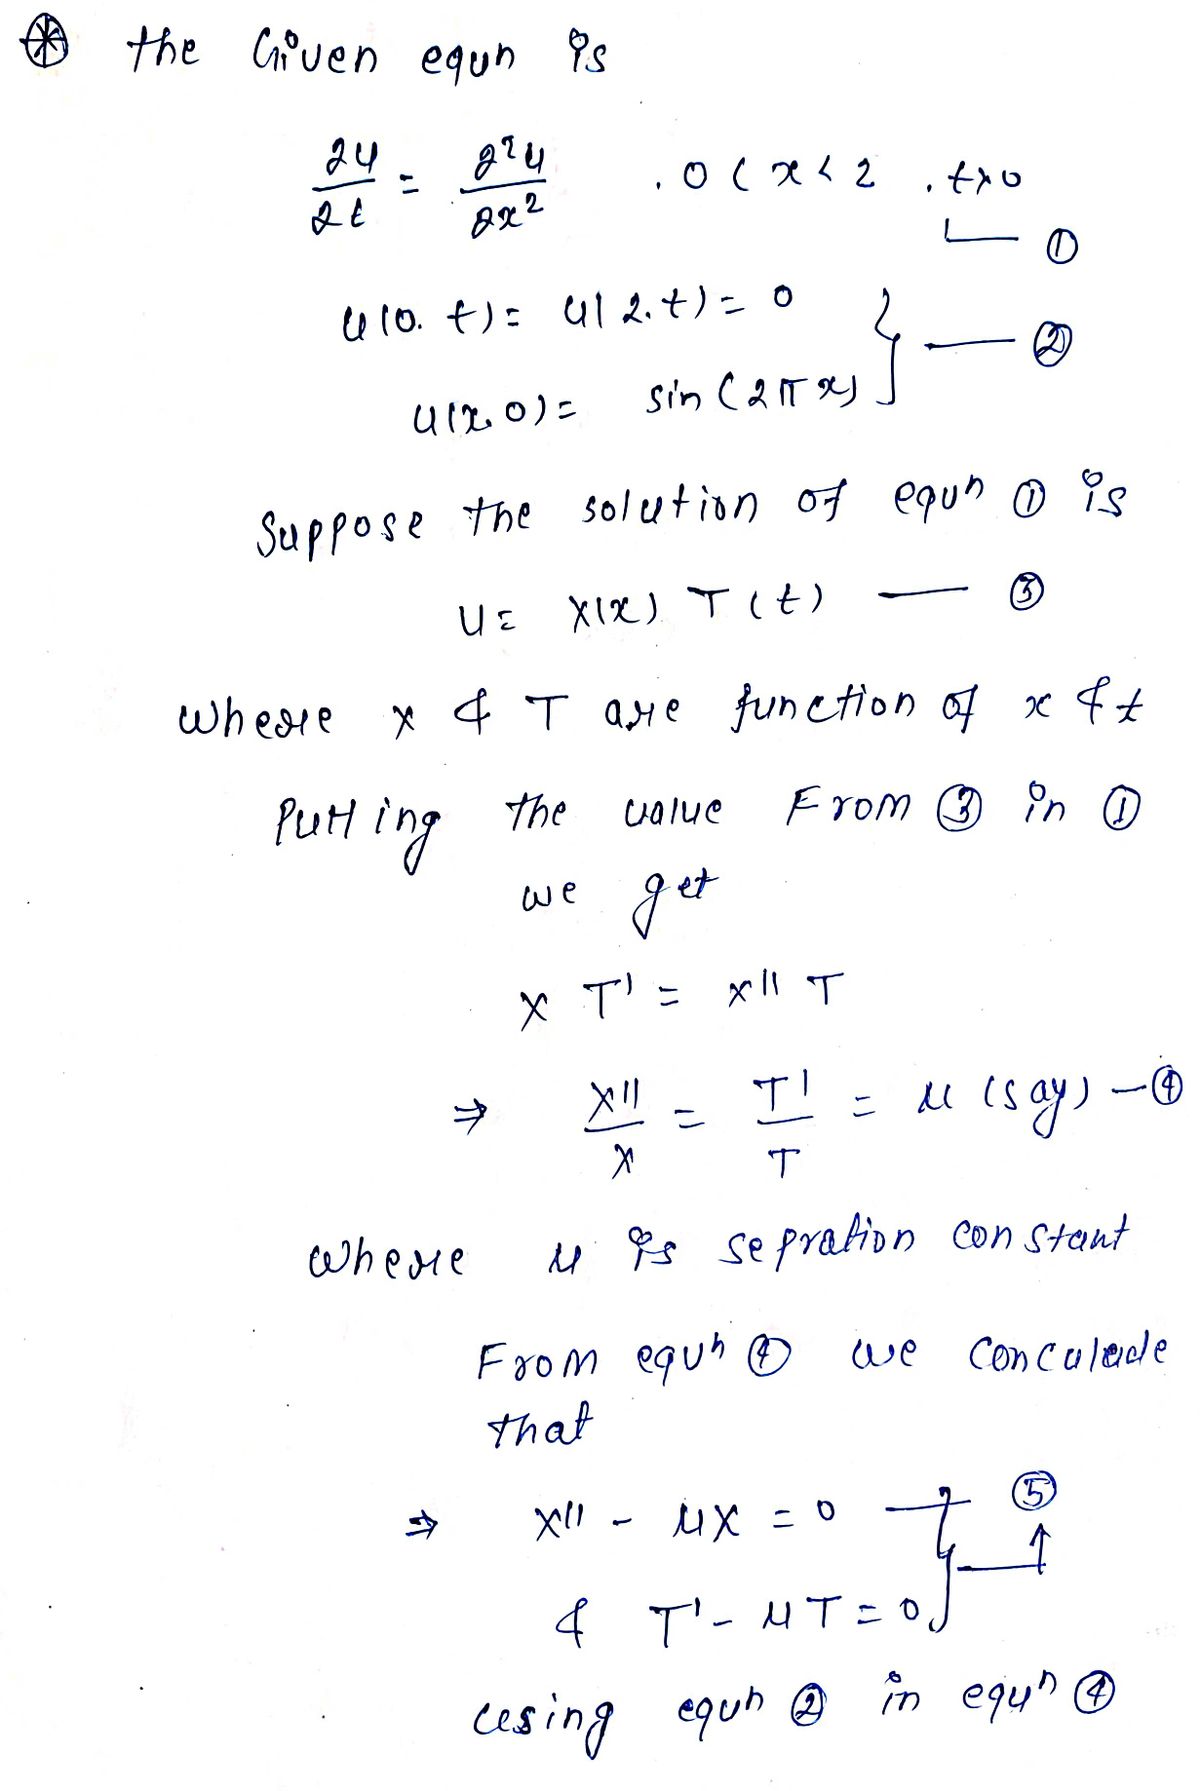 ⊛ the Given equn is
∂u/∂t = ∂²u/∂x² , 0 < x < 2 , t>0
— ①
u(0, t) = u(2, t) = 0
} — ②
u(x, 0) = sin(2πx)
Suppose the solution of equn ① is
u = X(x) T(t) — ③
where x & T are function of x & t
Putting the value From ③ in ①
we get
X T' = X'' T
⇒ X''/X = T'/T = μ (say) — ④
where μ is sepration constant
From equn ④ we Conculude
that
⇒ X'' - μX = 0 } ⑤
& T' - μT = 0
using equn ② in equn ④